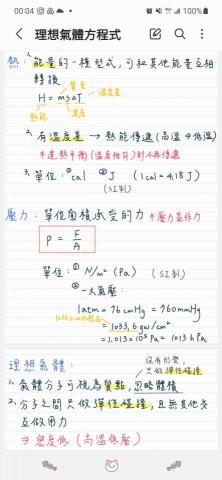 00:04
100%
理想氣體方程式
熱: 1. 能量的一種型式,可和其他能量互相
轉換
質量
H = msΔT 溫度差
熱能 比熱
2. 有溫度差 → 熱能傳遞(高溫⇒低溫)
*達熱平衡(溫度相同)則不再傳遞
3. 單位:① cal ② J (1cal = 4.18J)
(SI制)
壓力:單位面積承受的力 *壓力並非力
P = F/A
單位:① N/m² (Pa) (SI制)
② 一大氣壓:
1atm = 76 cmHg = 760mmHg
= 1033.6 gw/cm²
= 1.013×10⁵ Pa = 1013 hPa
理想氣體:
沒有形變,
只做彈性碰撞
1. 氣體分子可視為質點,忽略體積
2. 分子之間只做彈性碰撞,且無其他交
互作用力
⇒ 密度低(高溫低壓)